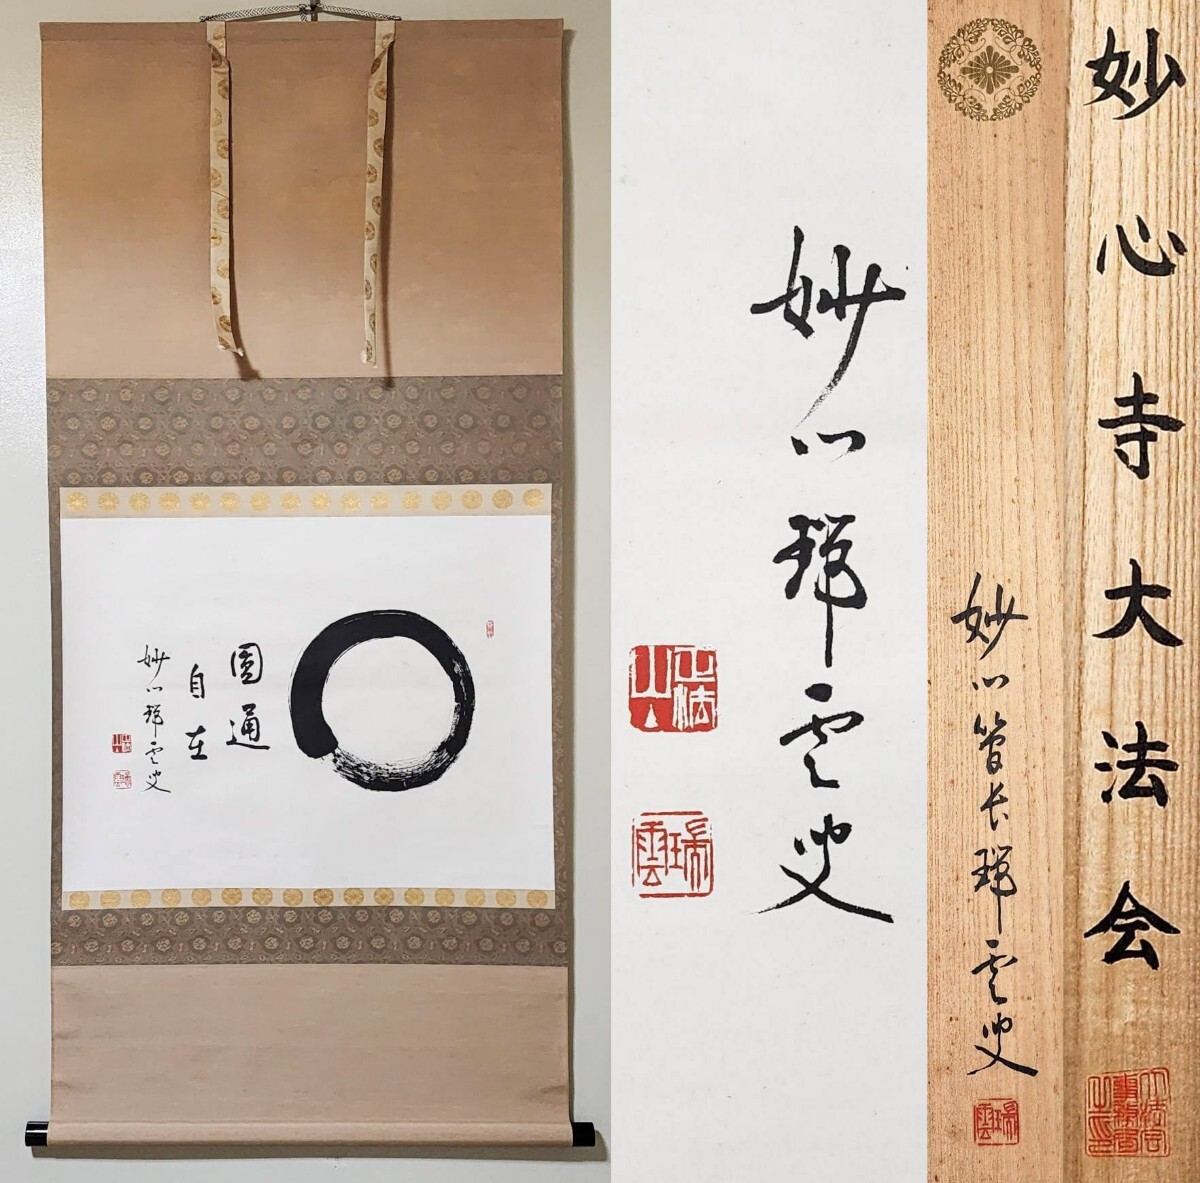 圓通
自在
妙心瑞雲叟
妙心瑞雲叟
瑞雲
妙心管長瑞雲叟
瑞雲
妙心寺大法会